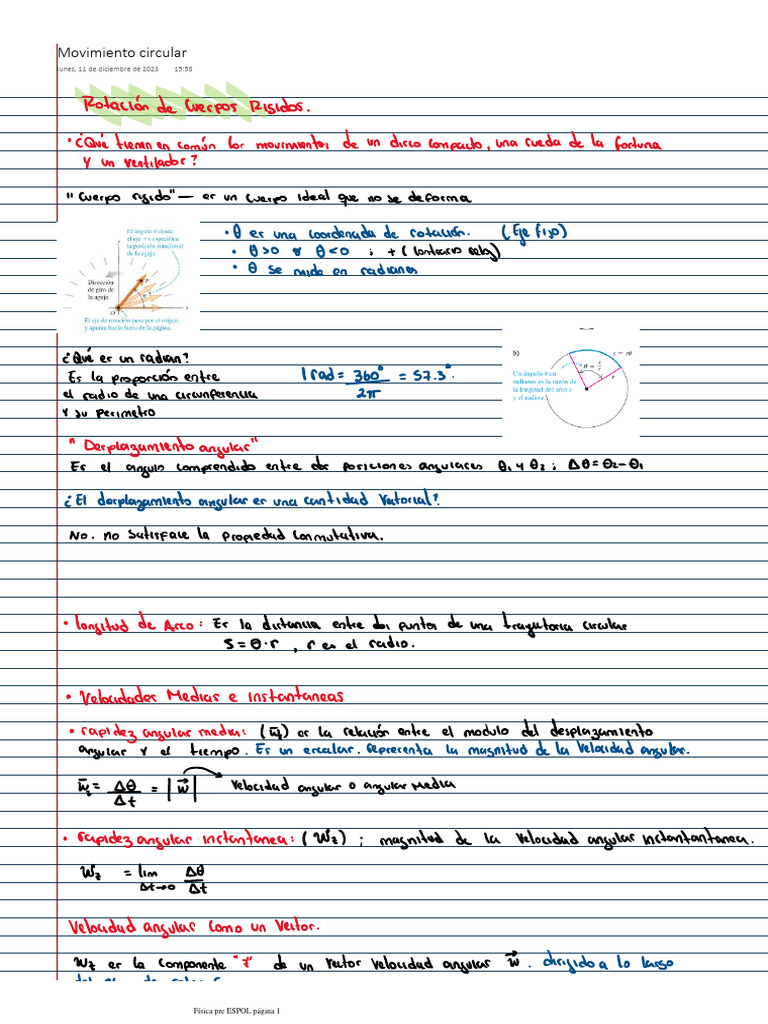 Movimiento circular
lunes, 11 de diciembre de 2023 15:58
Rotación de Cuerpos Rígidos.
• ¿Qué tienen en común los movimientos de un disco compacto, una rueda de la fortuna
y un ventilador?
"Cuerpo rígido" — es un cuerpo ideal que no se deforma
El ángulo θ desde
el eje +x especifica
la posición rotacional
de la aguja.
y
Dirección
de giro de
la aguja
P
θ
O
x
El eje de rotación pasa por el origen
y apunta hacia fuera de la página.
• θ es una coordenada de rotación. (Eje fijo)
• θ>0 o θ<0 ; + (contrario reloj)
• θ se mide en radianes
¿Qué es un radian?
Es la proporción entre
el radio de una circunferencia
y su perimetro
1 rad = 360° / 2π = 57.3°.
b)
s = rθ
Un ángulo θ en
radianes es la razón de
la longitud del arco s
y el radio r.
θ = s/r
r
"Desplazamiento angular"
Es el angulo comprendido entre dos posiciones angulares θ1 y θ2 ; Δθ = θ2 - θ1
¿El desplazamiento angular es una cantidad vectorial?
No. no satisface la propiedad conmutativa.
• longitud de Arco: Es la distancia entre dos puntos de una trayectoria circular
S = θ·r , r es el radio.
• Velocidades Medias e instantaneas
• rapidez angular media: (w̄z) es la relación entre el modulo del desplazamiento
angular y el tiempo. Es un escalar. Representa la magnitud de la velocidad angular.
w̄z = Δθ/Δt = |w⃗| velocidad angular o angular Media
• rapidez angular instantanea: (wz) ; magnitud de la velocidad angular instantantanea.
wz = lim Δt→0 Δθ/Δt
Velocidad angular como un vector.
wz es la componente "z" de un vector velocidad angular w⃗ . dirigido a lo largo
Física pre ESPOL página 1